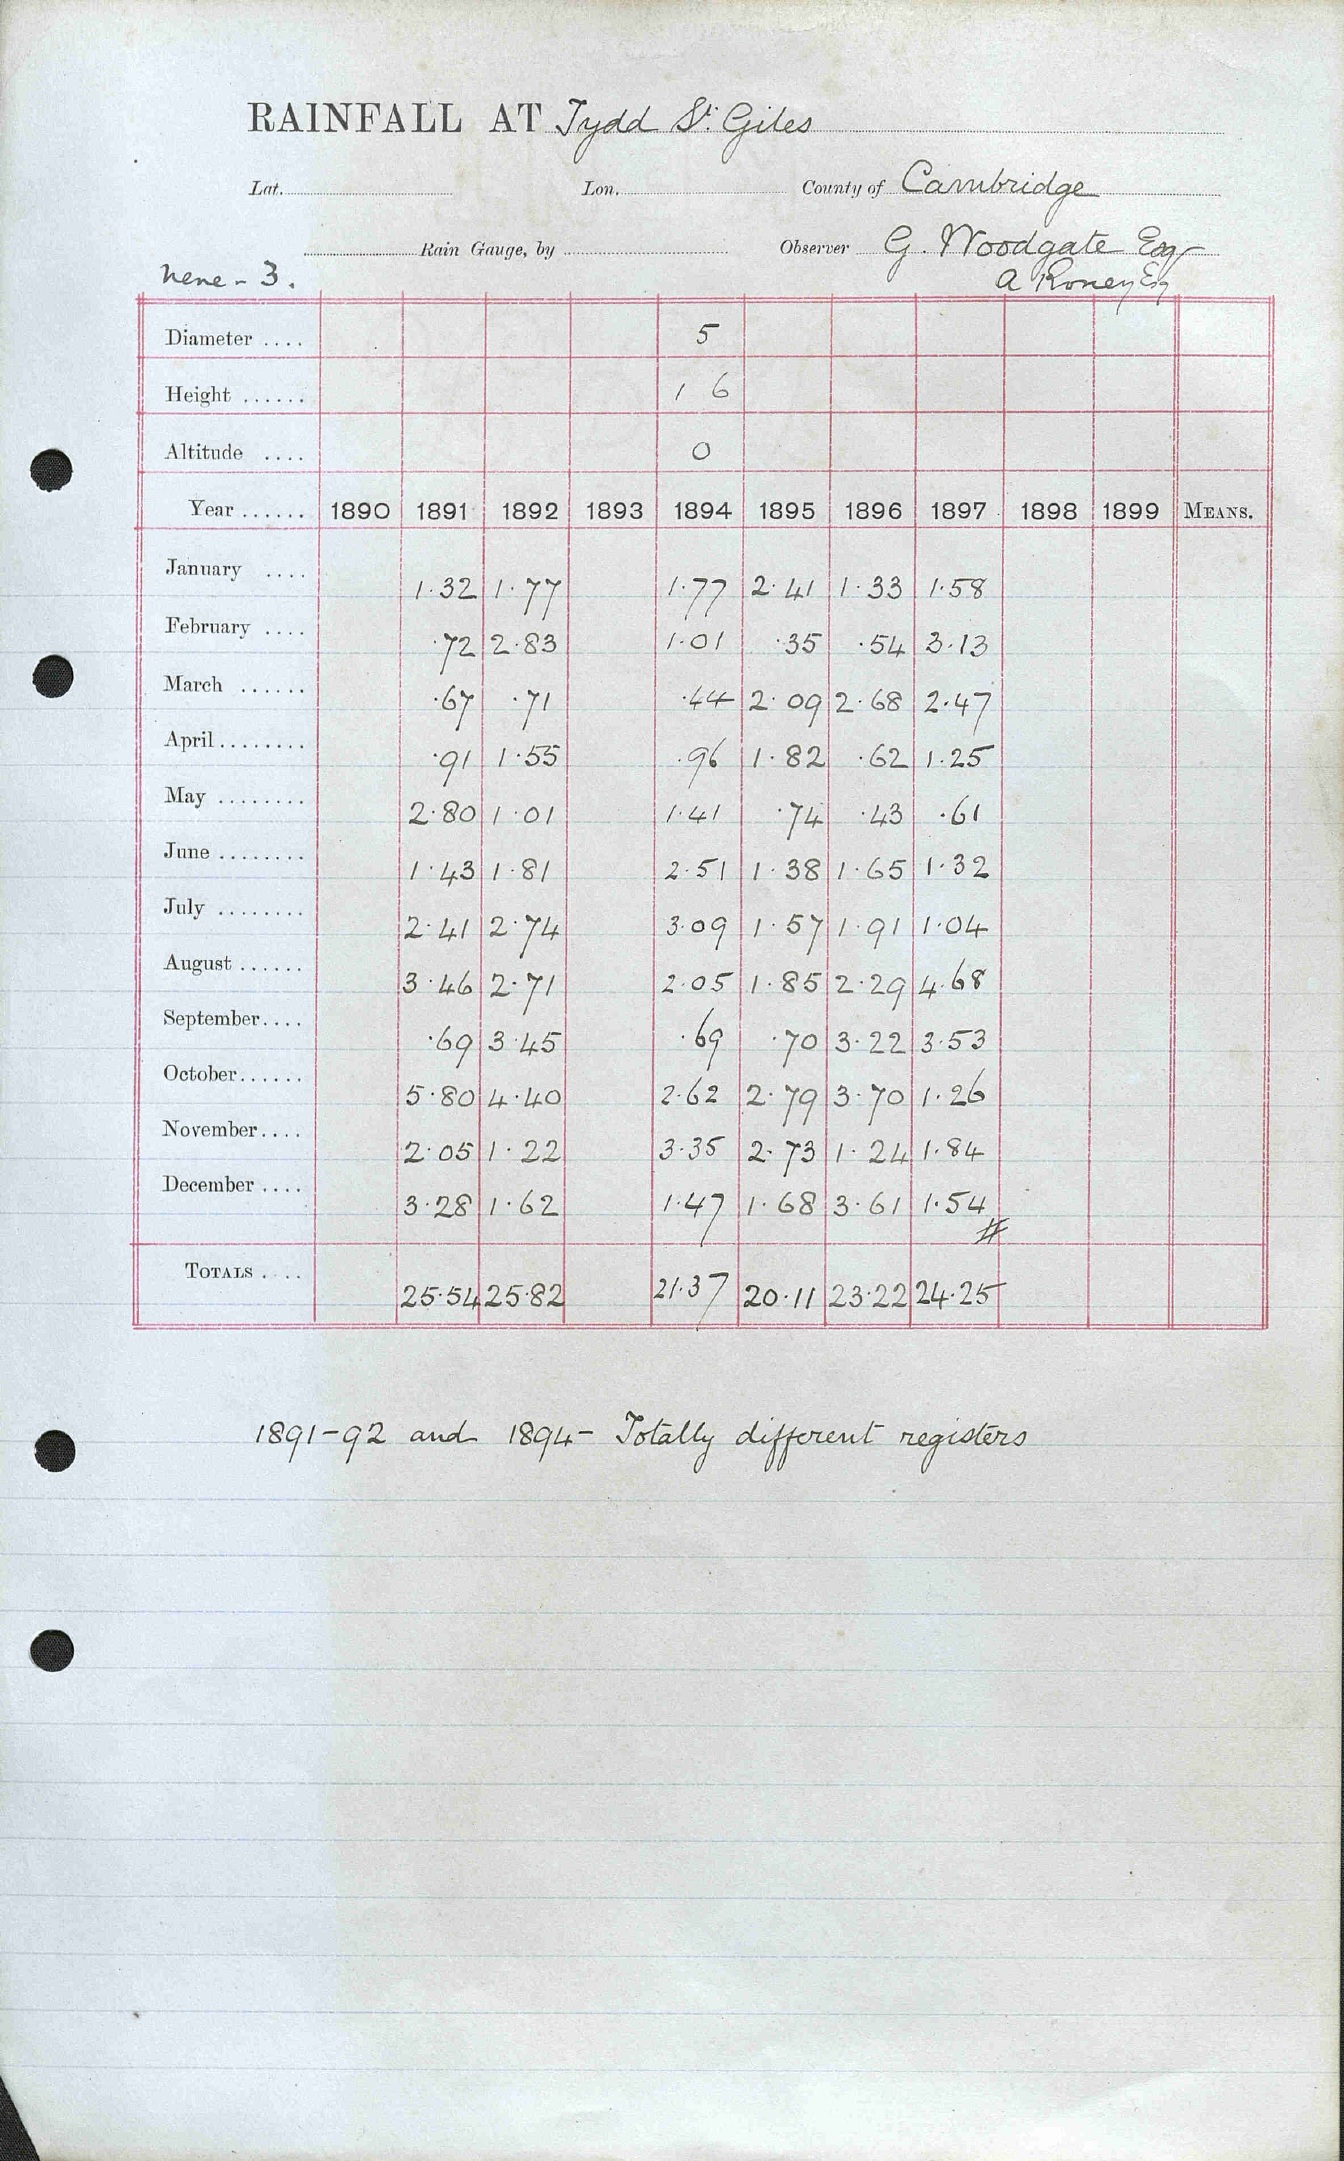 RAINFALL AT Tydd St. Giles
Lat. Lon. County of Cambridge
Rain Gauge, by Observer G. Woodgate Esq
Nene - 3. A Roney Esq
Diameter .... 5
Height ...... 1 6
Altitude .... 0
Year ...... 1890 1891 1892 1893 1894 1895 1896 1897 1898 1899 MEANS.
January .... 1.32 1.77 1.77 2.41 1.33 1.58
February .... .72 2.83 1.01 .35 .54 3.13
March ...... .67 .71 .44 2.09 2.68 2.47
April ........ .91 1.55 .96 1.82 .62 1.25
May ........ 2.80 1.01 1.41 .74 .43 .61
June ........ 1.43 1.81 2.51 1.38 1.65 1.32
July ........ 2.41 2.74 3.09 1.57 1.91 1.04
August ...... 3.46 2.71 2.05 1.85 2.29 4.68
September .... .69 3.45 .69 .70 3.22 3.53
October ...... 5.80 4.40 2.62 2.79 3.70 1.26
November .... 2.05 1.22 3.35 2.73 1.24 1.84
December .... 3.28 1.62 1.47 1.68 3.61 1.54
#
TOTALS .... 25.54 25.82 21.37 20.11 23.22 24.25
1891-92 and 1894- Totally different registers